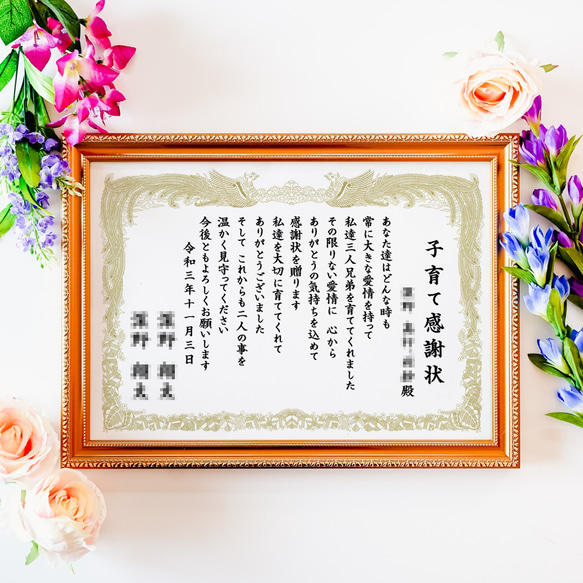 子育て感謝状
殿
あなた達はどんな時も
常に大きな愛情を持って
私達三人兄弟を育ててくれました
その限りない愛情に 心から
ありがとうの気持ちを込めて
感謝状を贈ります
私達を大切に育ててくれて
ありがとうございました
そして これからも二人の事を
温かく見守ってください
今後ともよろしくお願いします
令和三年十一月三日